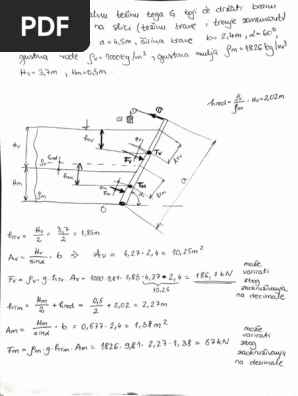 PDF
težinu tega G koji će držati branu
na slici (težinu brave i trenje zanemariti)
a = 4,5m, širina brave b = 2,4m, α = 60°
gustina vode ρv = 1000 kg/m³, gustina mulja ρm = 1826 kg/m³
Hv = 3,7m, Hm = 0,5m.
hred = ρv/ρm · Hv = 2,02m
G
hTv
Hv
ρv
hred
ev
Tv
Fv
hTm
a
Hm
ρm
em
Tm
Fm
O
hTv = Hv/2 = 3,7/2 = 1,85m
Av = Hv/sinα · b ⇒ Av = 4,27 · 2,4 = 10,25 m²
Fv = ρv · g · hTv · Av = 1000 · 9,81 · 1,85 · 4,27 · 2,4 = 186,1 kN
10,25
može
varirati
zbog
zaokruživanja
na decimale
hTm = Hm/2 + hred = 0,5/2 + 2,02 = 2,27m
Am = Hm/sinα · b = 0,577 · 2,4 = 1,38 m²
Fm = ρm · g · hTm · Am = 1826 · 9,81 · 2,27 · 1,38 = 57 kN
može
varirati
zbog
zaokruživanja
na decimale